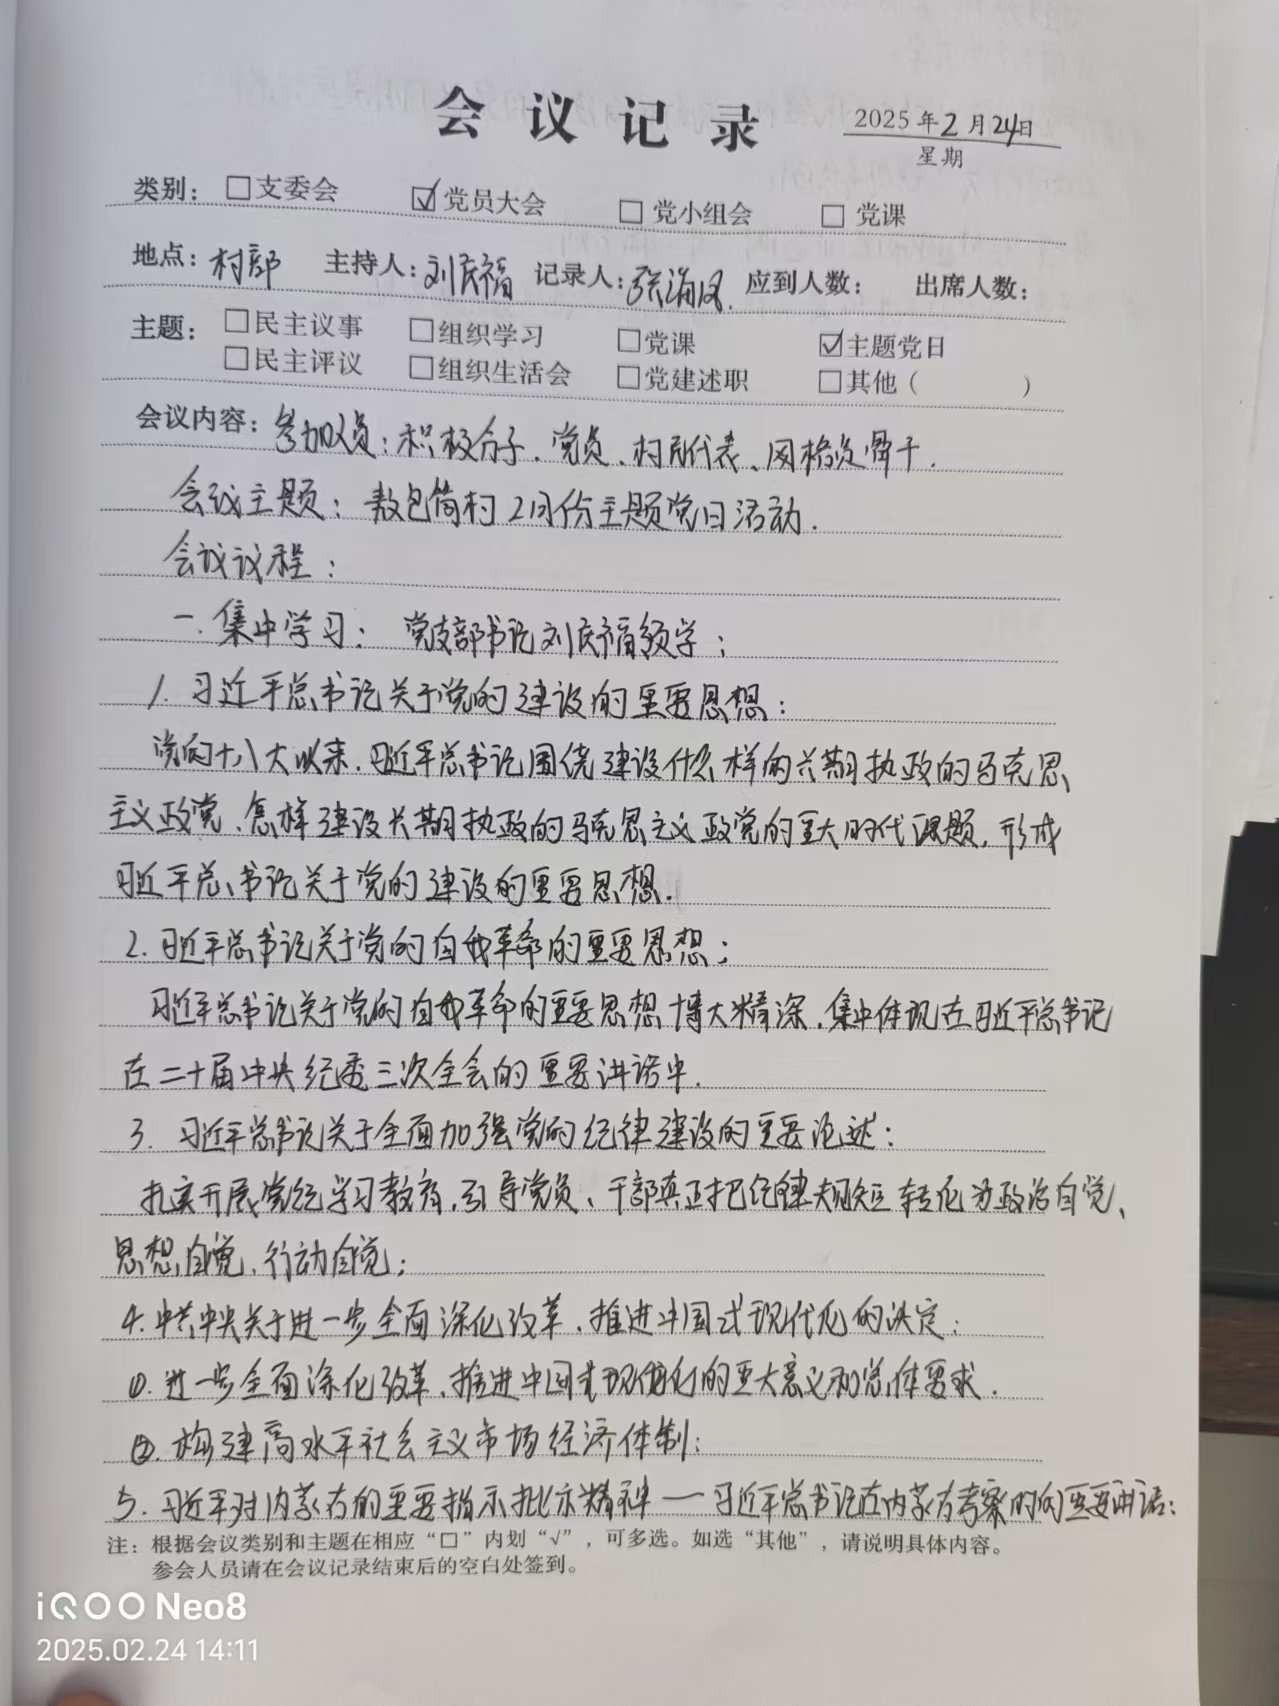 会议记录
2025年2月24日
星期
类别：□支委会 ☑党员大会 □党小组会 □党课
地点：村部 主持人：刘庆福 记录人：张海凤. 应到人数： 出席人数：
主题：□民主议事 □组织学习 □党课 ☑主题党日
□民主评议 □组织生活会 □党建述职 □其他（ ）
会议内容：参加人员：积极分子、党员、村民代表、网格员骨干.
会议主题：敖包筒村2月份主题党日活动.
会议议程：
一.集中学习：党支部书记刘庆福领学；
1.习近平总书记关于党的建设的重要思想：
党的十八大以来.习近平总书记围绕建设什么样的长期执政的马克思
主义政党、怎样建设长期执政的马克思主义政党的重大时代课题，形成
习近平总书记关于党的建设的重要思想.
2.习近平总书记关于党的自我革命的重要思想；
习近平总书记关于党的自我革命的重要思想博大精深.集中体现在习近平总书记
在二十届中央纪委三次全会的重要讲话中.
3.习近平总书记关于全面加强党的纪律建设的重要论述：
扎实开展党纪学习教育.引导党员、干部真正把纪律规矩转化为政治自觉、
思想自觉、行动自觉；
4.中共中央关于进一步全面深化改革、推进中国式现代化的决定：
①.进一步全面深化改革、推进中国式现代化的重大意义和总体要求.
②.构建高水平社会主义市场经济体制；
5.习近平对内蒙古的重要指示批示精神——习近平总书记在内蒙古考察时的重要讲话：
注：根据会议类别和主题在相应“□”内划“√”，可多选。如选“其他”，请说明具体内容。
参会人员请在会议记录结束后的空白处签到。
iQOO Neo8
2025.02.24 14:11